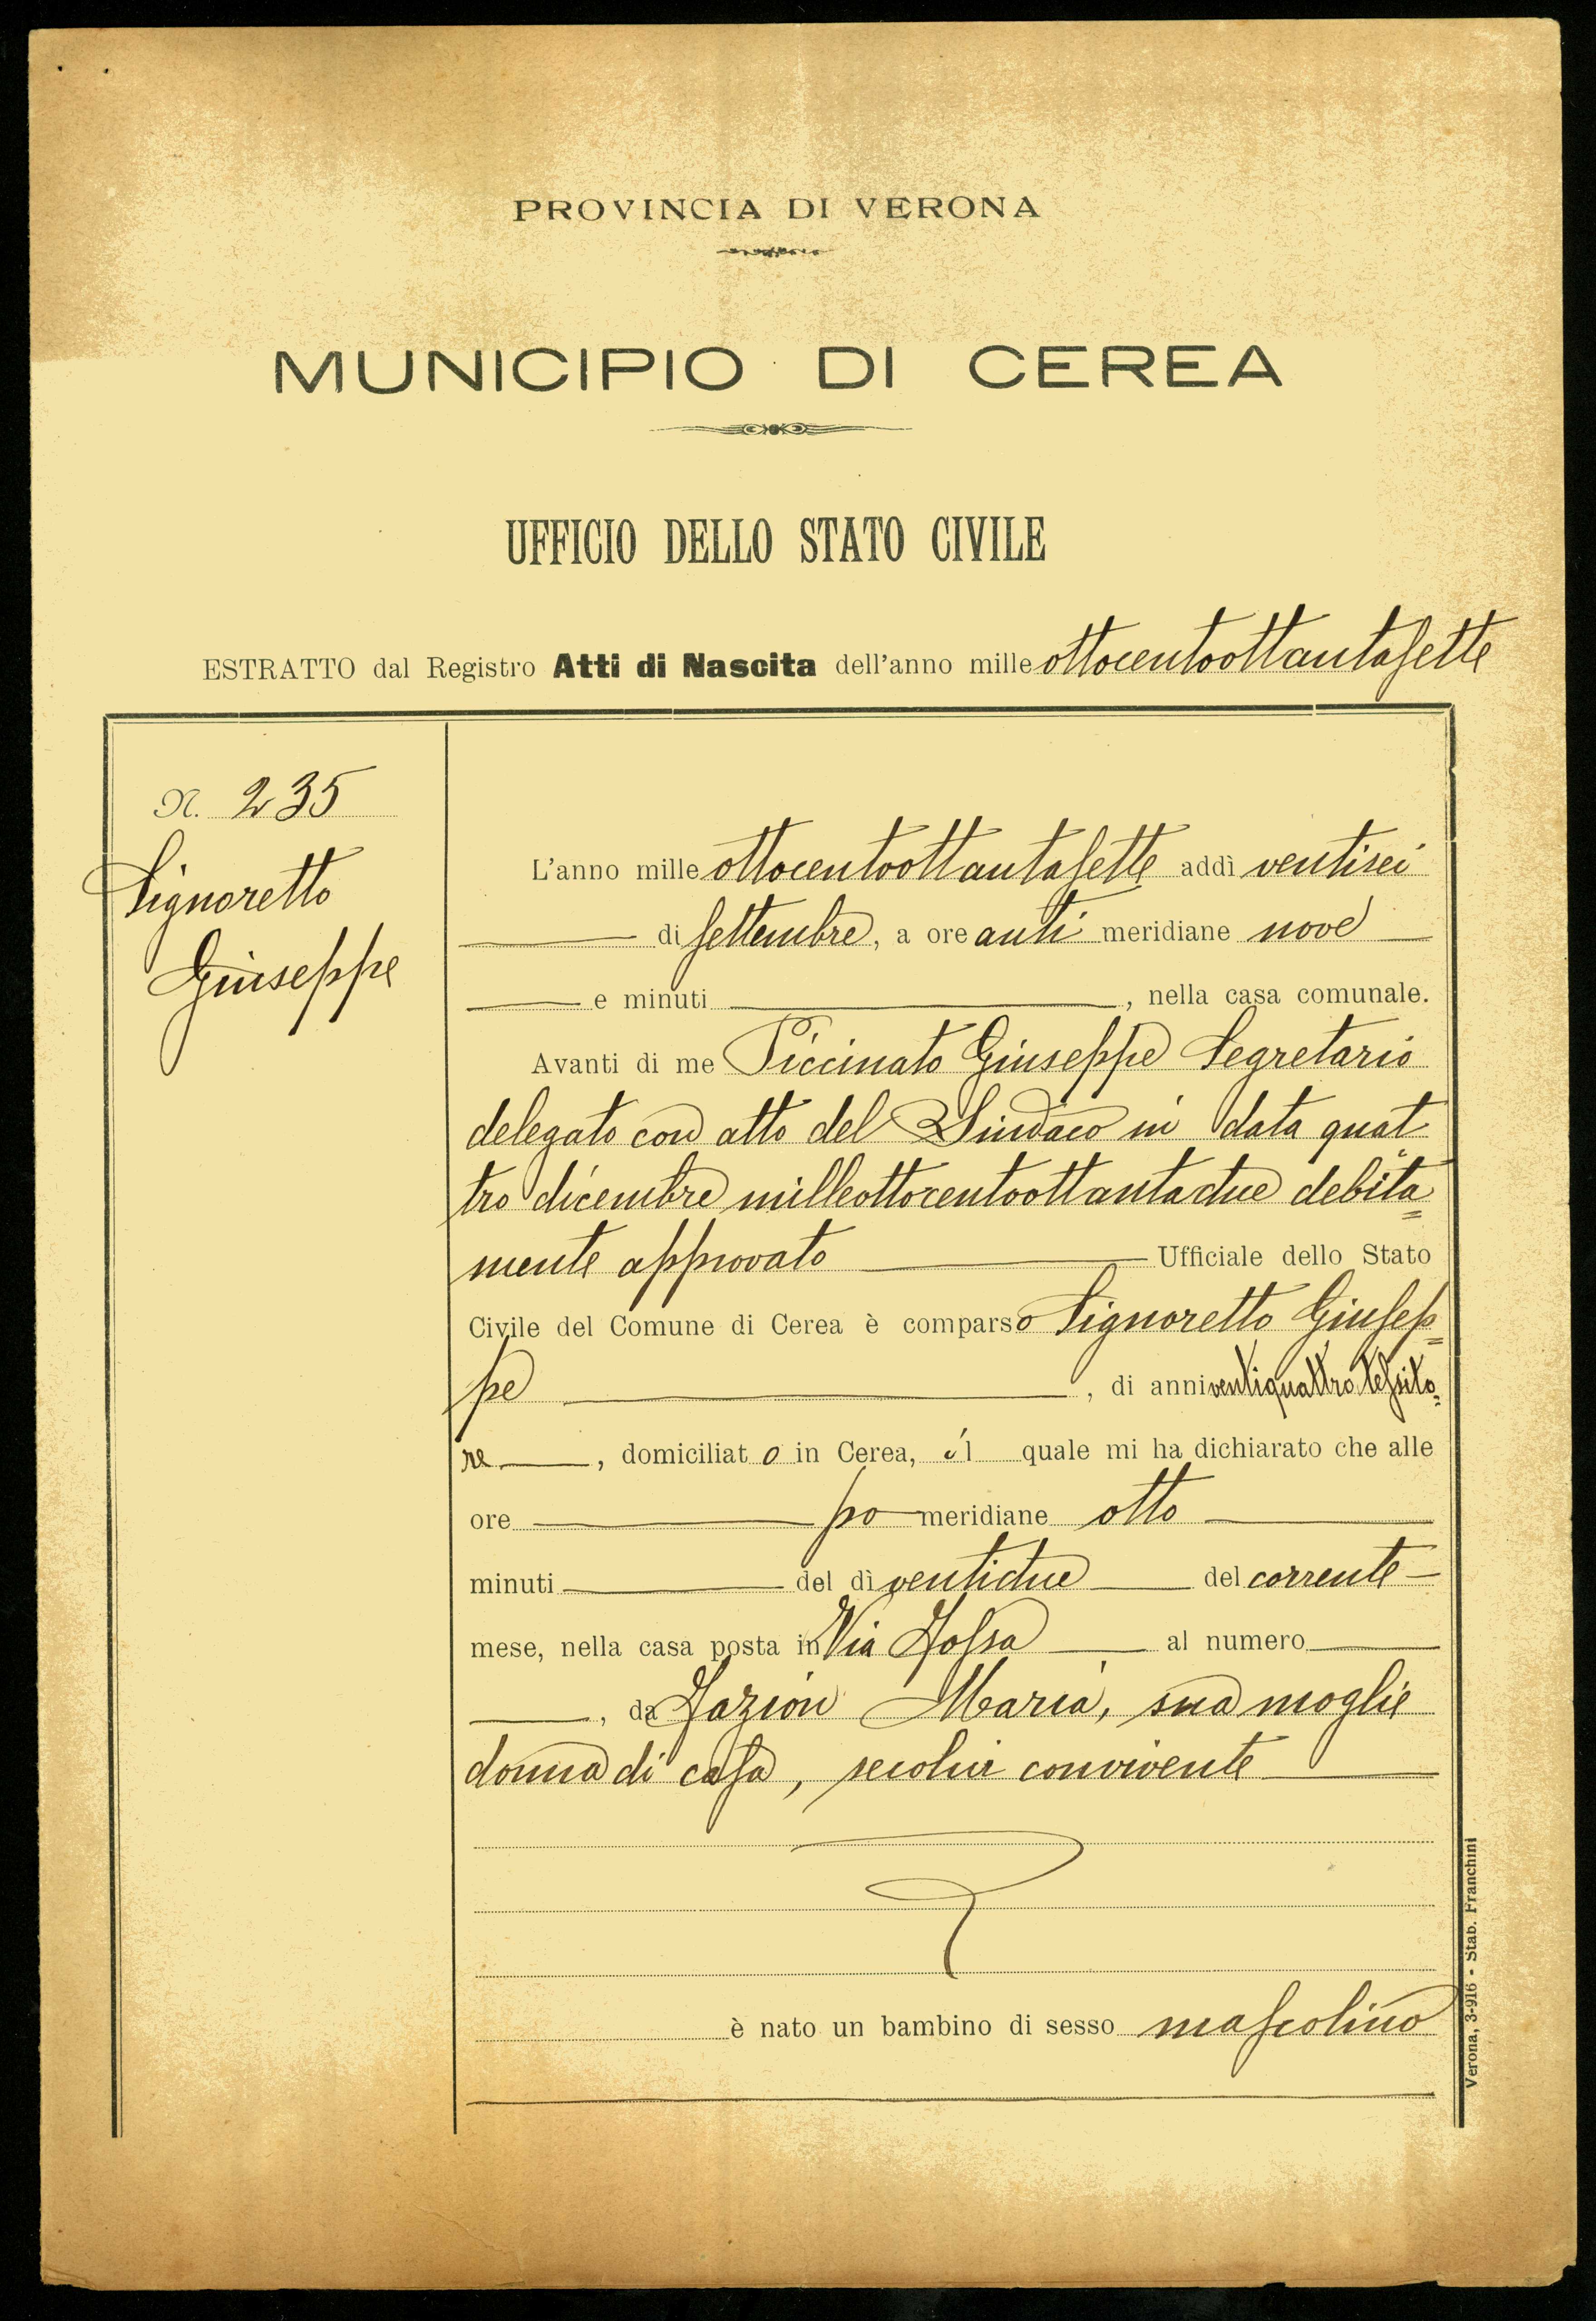 PROVINCIA DI VERONA
MUNICIPIO DI CEREA
UFFICIO DELLO STATO CIVILE
ESTRATTO dal Registro Atti di Nascita dell'anno mille ottocentoottantasette
N. 235
Signoretto
Giuseppe
L'anno mille ottocentoottantasette addì ventisei
di settembre, a ore anti meridiane nove
e minuti , nella casa comunale.
Avanti di me Piccinato Giuseppe Segretario
delegato con atto del Sindaco in data quat
tro dicembre milleottocentoottantadue debita=
mente approvato Ufficiale dello Stato
Civile del Comune di Cerea è comparso Signoretto Giusep=
pe , di anni ventiquattro tessito=
re , domiciliato in Cerea, il quale mi ha dichiarato che alle
ore po meridiane otto
minuti del dì ventidue del corrente
mese, nella casa posta in Via Fossa al numero
, da Fazion Maria, sua moglie
donna di casa, secolui convivente
è nato un bambino di sesso mascolino
Verona, 3-916 - Stab. Franchini